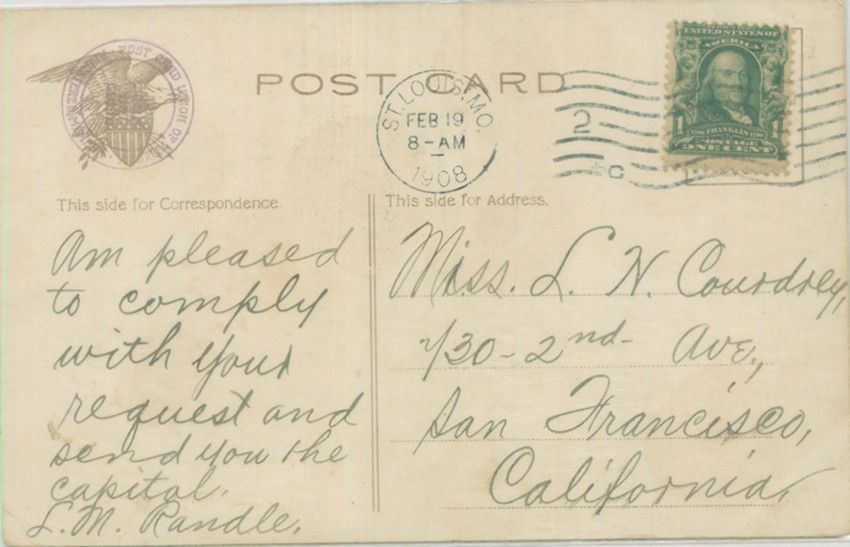 POST CARD
ST. LOUIS, MO.
FEB 19
8-AM
1908
2
C
UNITED STATES OF
AMERICA
1 FRANKLIN 1
POSTAGE
ONE CENT
This side for Correspondence.
Am pleased
to comply
with your
request and
send you the
capitol.
L.M. Randle.
This side for Address.
Miss. L. N. Courdrey,
730-2nd- Ave.,
San Francisco,
California,